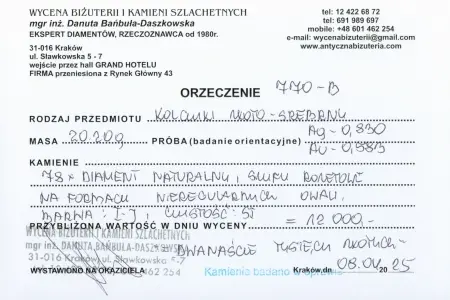 WYCENA BIŻUTERII I KAMIENI SZLACHETNYCH
mgr inż. Danuta Bańbuła-Daszkowska
EKSPERT DIAMENTÓW, RZECZOZNAWCA od 1980r.
31-016 Kraków
ul. Sławkowska 5 - 7
wejście przez hall GRAND HOTELU
FIRMA przeniesiona z Rynek Główny 43
tel: 12 422 68 72
tel: 691 989 697
mobile: +48 601 462 254
e-mail: wycenabizuterii@gmail.com
www.antycznabizuteria.com
ORZECZENIE 770-B
RODZAJ PRZEDMIOTU KOLCZYKI ZŁOTO-SREBRNE
MASA 20.20g PRÓBA (badanie orientacyjne) Ag - 0,830
Au - 0,583
KAMIENIE
78 x DIAMENT NATURALNY, SZLIFU ROZETOWE
NA FORMACH NIEREGULARNYCH OWALI,
BARWA: [-], CZYSTOŚĆ: SI
PRZYBLIŻONA WARTOŚĆ W DNIU WYCENY = 12 000,-
WYCENA BIŻUTERII I KAMIENI SZLACHETNYCH
mgr inż. DANUTA BAŃBUŁA-DASZKOWSKA
= DWANAŚCIE TYSIĘCY ZŁOTYCH -
31-016 Kraków, ul. Sławkowska 5-7
WYSTAWIONO NA OKAZICIELA 462 254
Kamienie badano w oprawie
Kraków,dn. 08.04 20 25